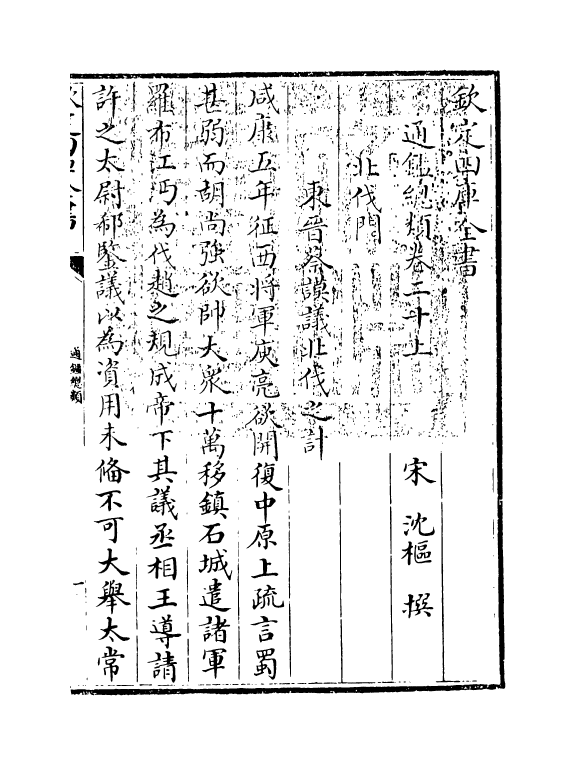 欽定四庫全書
通鑑總類卷二十上
宋 沈樞 撰
北伐門
東晉蔡謨議北伐之計
咸康五年征西將軍庾亮欲開復中原上疏言蜀
甚弱而胡尚強欲帥大衆十萬移鎮石城遣諸軍
羅布江沔為伐趙之規成帝下其議丞相王導請
許之太尉郗鑒議以為資用未備不可大舉太常
通鑑總類
一